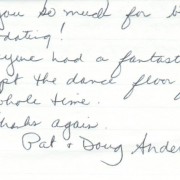 you so much for b
dating!
yone had a fantast
pt the dance floor
whole time.
hanks again.
Pat & Doug Ander